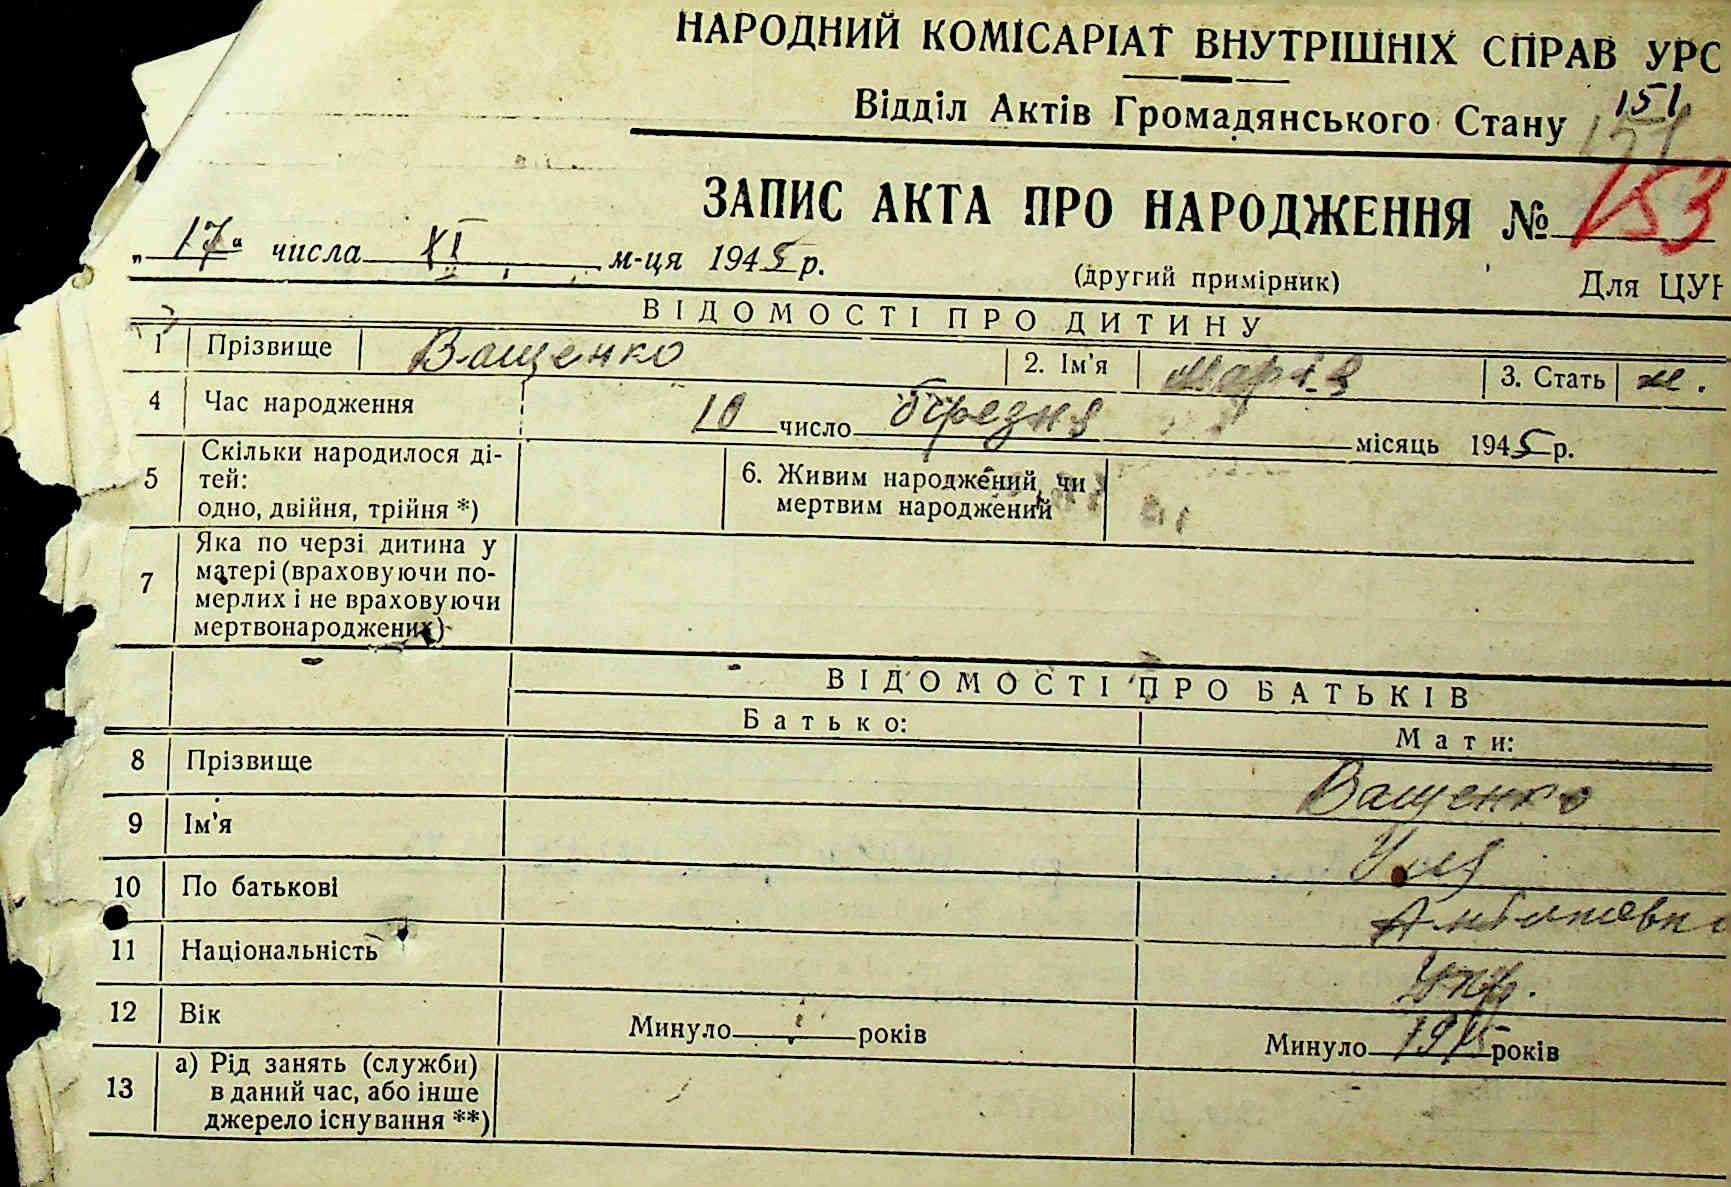 НАРОДНИЙ КОМІСАРІАТ ВНУТРІШНІХ СПРАВ УРС
Відділ Актів Громадянського Стану
151
151
ЗАПИС АКТА ПРО НАРОДЖЕННЯ № 153
„17“ числа XI м-ця 1945 р.
(другий примірник)
Для ЦУН
ВІДОМОСТІ ПРО ДИТИНУ
1 Прізвище Ващенко 2. Ім'я Марія 3. Стать
4 Час народження 10 число березня місяць 1945 р.
5 Скільки народилося ді-
тей:
одно, двійня, трійня *)
6. Живим народжений, чи
мертвим народжений
7 Яка по черзі дитина у
матері (враховуючи по-
мерлих і не враховуючи
мертвонароджених)
ВІДОМОСТІ ПРО БАТЬКІВ
Батько: Мати:
8 Прізвище Ващенко
9 Ім'я
10 По батькові
11 Національність Укр.
12 Вік Минуло років Минуло 1915 років
13 а) Рід занять (служби)
в даний час, або інше
джерело існування **)